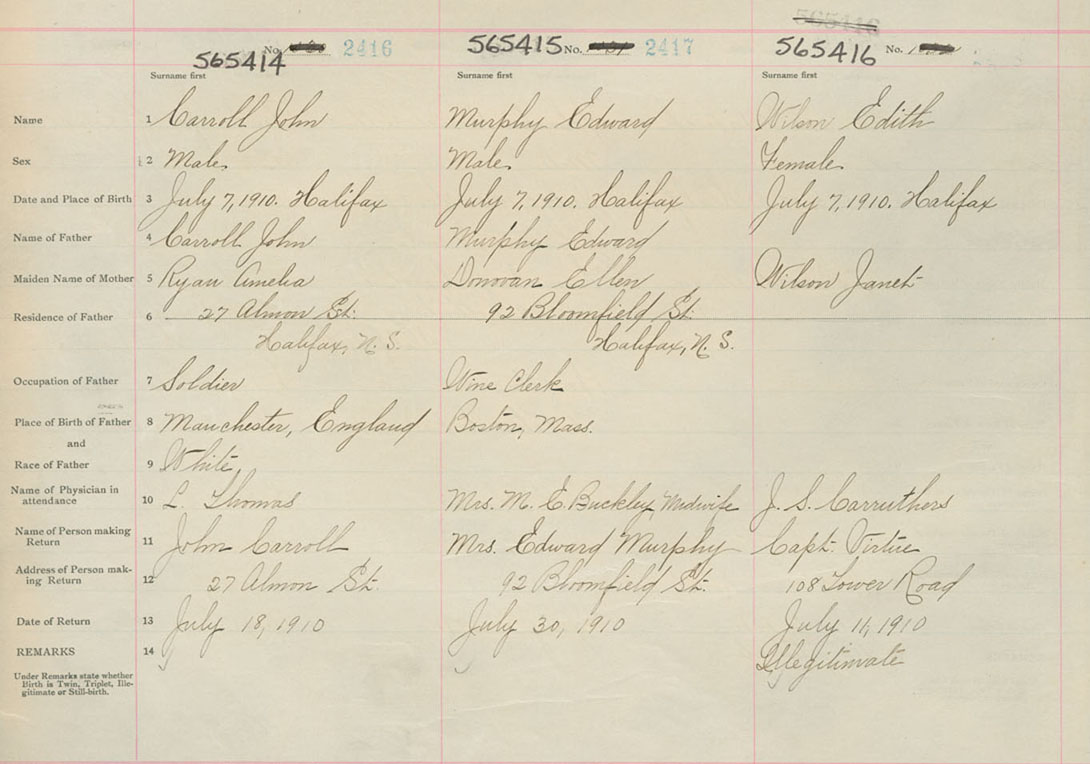 565416
565414 No. 2416 565415 No. 2417 565416 No.
Surname first Surname first Surname first
Name 1 Carroll John Murphy Edward Wilson Edith
Sex 2 Male. Male. Female.
Date and Place of Birth 3 July 7, 1910. Halifax July 7, 1910. Halifax July 7, 1910. Halifax
Name of Father 4 Carroll John Murphy Edward
Maiden Name of Mother 5 Ryan Amelia Donovan Ellen Wilson Janet
Residence of Father 6 27 Almon St. 92 Bloomfield St.
Halifax, N.S. Halifax, N.S.
Occupation of Father 7 Soldier Wine Clerk
Place of Birth of Father 8 Manchester, England Boston, Mass.
and
Race of Father 9 White
Name of Physician in
attendance 10 L. Thomas Mrs. M. E. Buckley Midwife J. S. Carruthers
Name of Person making
Return 11 John Carroll Mrs. Edward Murphy Capt. Virtue
Address of Person mak-
ing Return 12 27 Almon St. 92 Bloomfield St. 108 Lower Road
Date of Return 13 July 18, 1910 July 30, 1910 July 11, 1910
REMARKS 14 Illegitimate
Under Remarks state whether
Birth is Twin, Triplet, Ille-
gitimate or Still-birth.